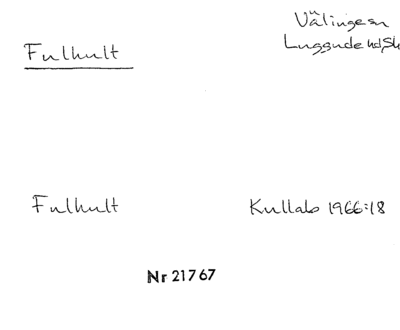 Välinge sn
Fulhult
Luggude hd, Sk
Fulhult Kullabo 1966:18
Nr 21767